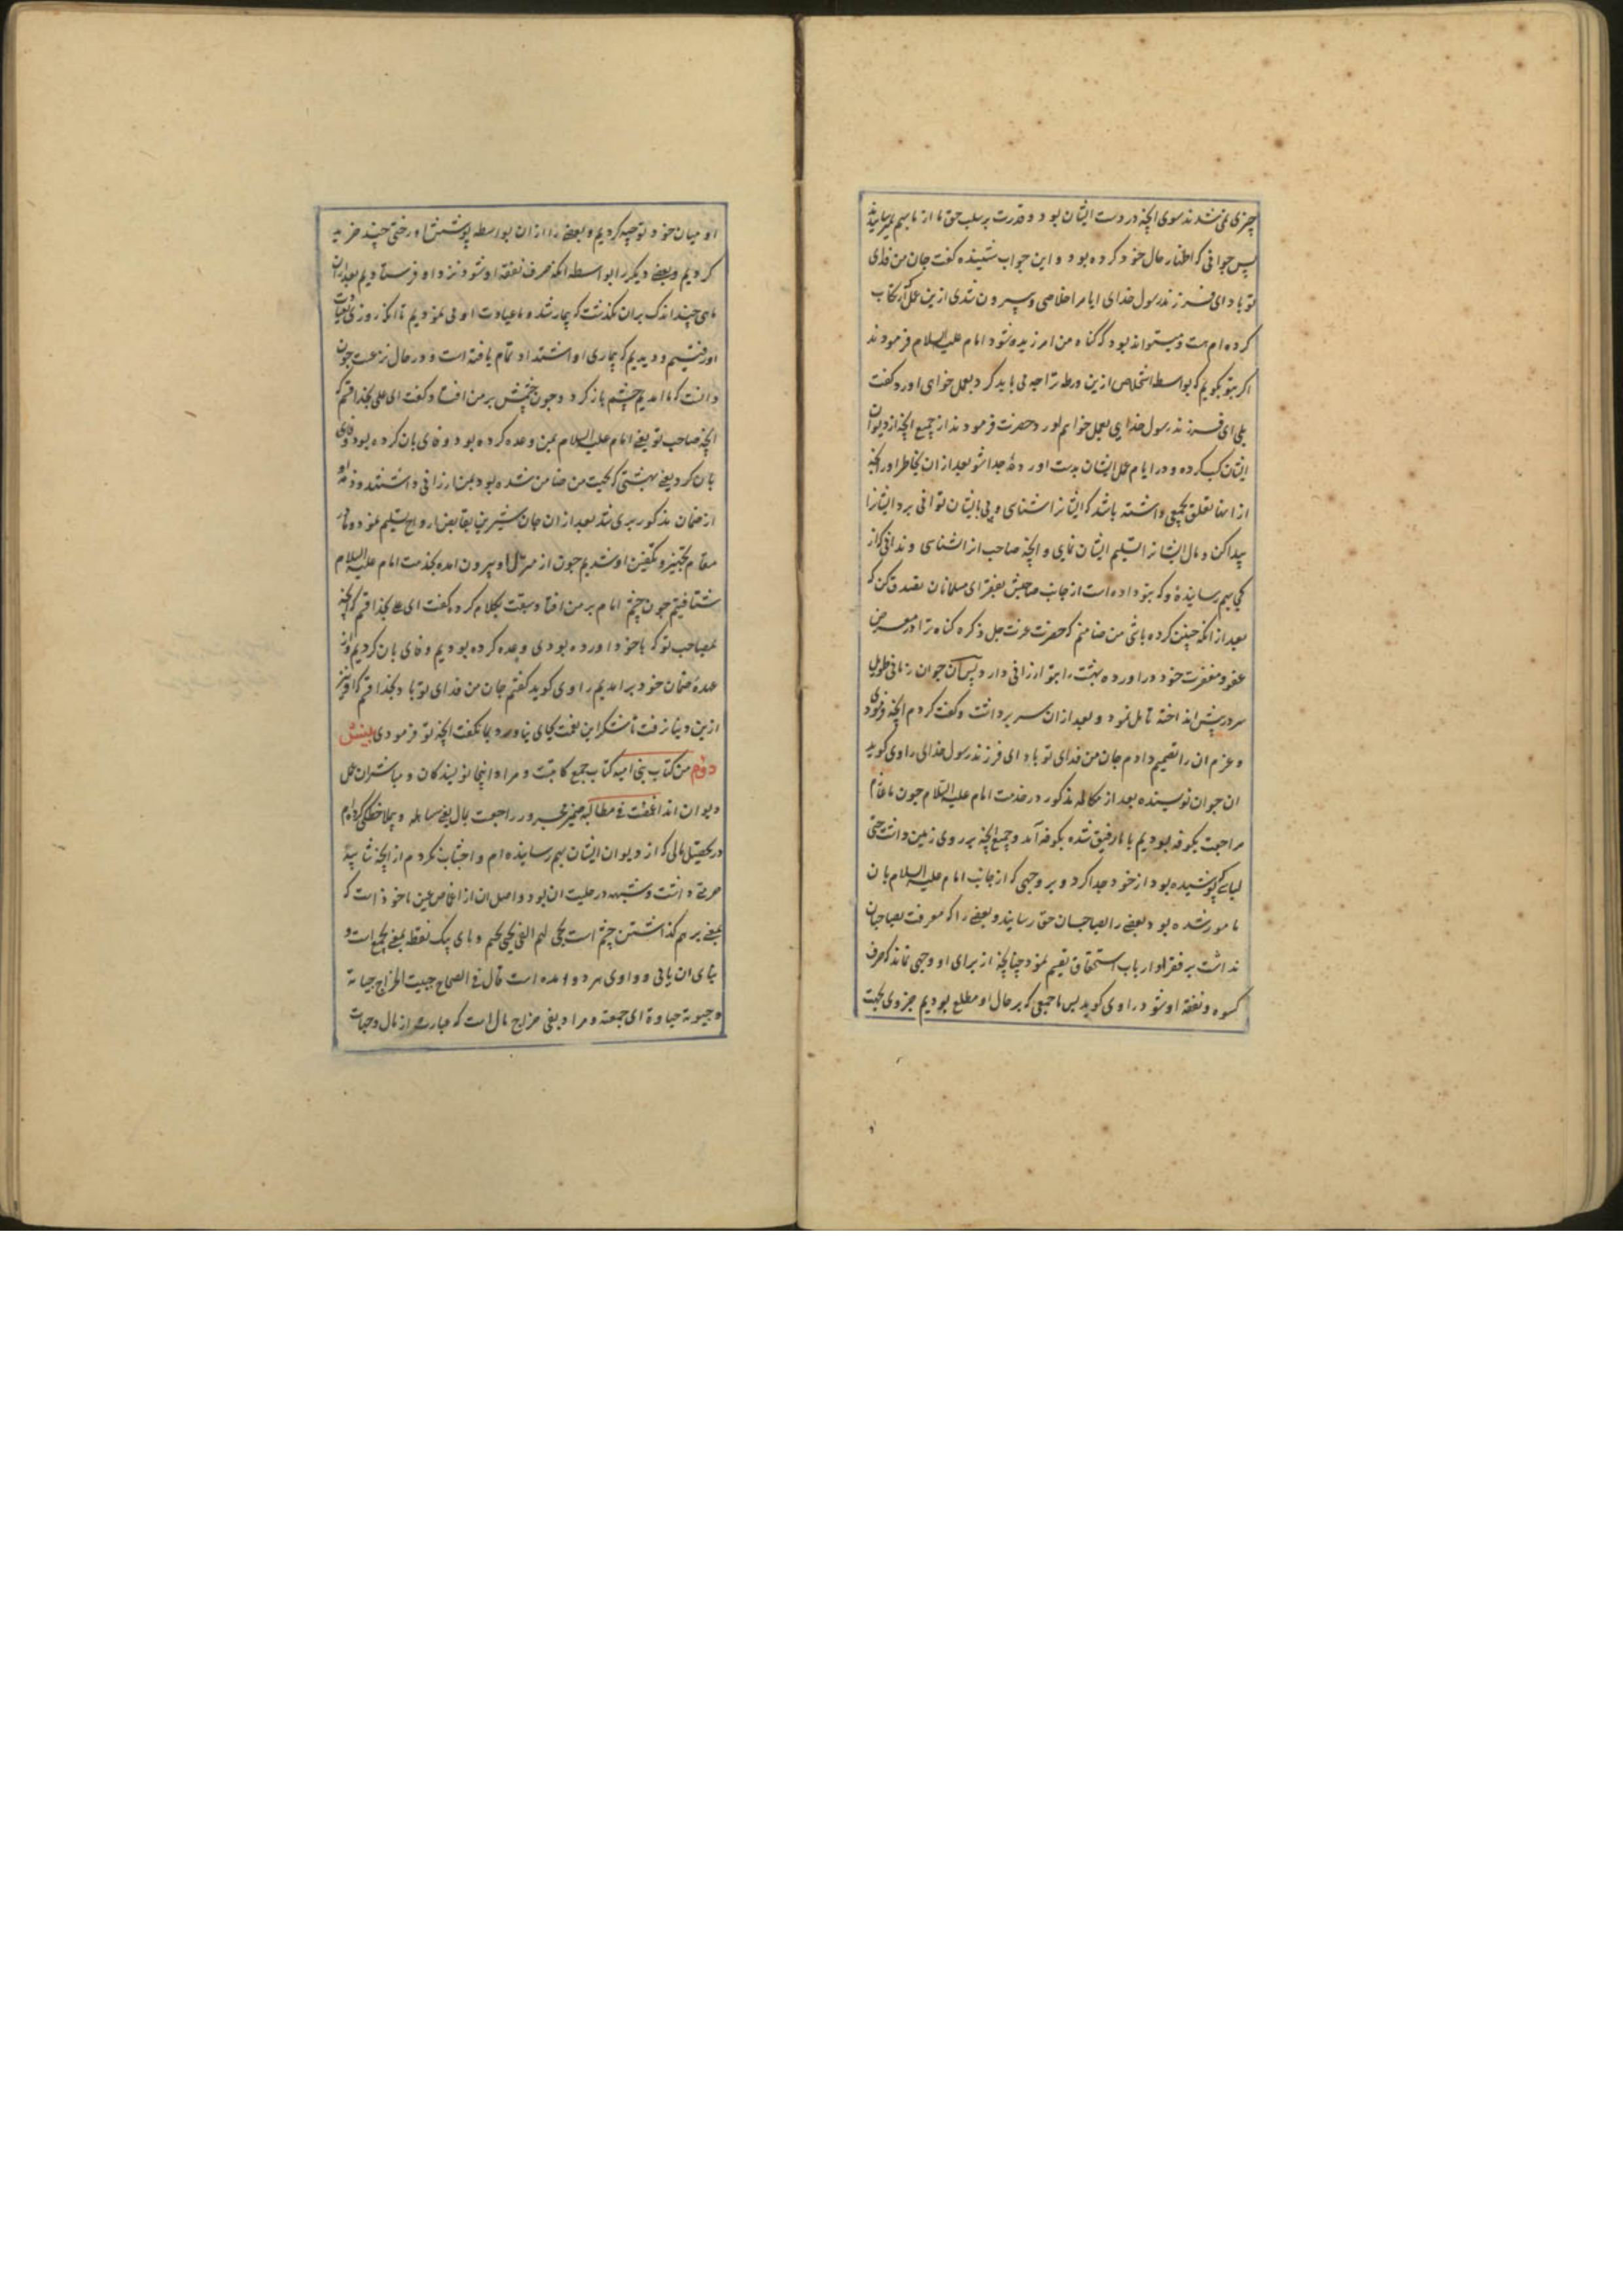 چیزی نمی‌شدند سوی انچه در دست ایشان بود و قدرت بر سلب حق ما از ما بهم نمیرسانیدند
پس جوانی که اظهار حال خود کرده بود و این جواب شنیده گفت جان من فدای
تو باد ای فرزند رسول خدای ایا مرا خلاصی و بیرون شدی ازین عمل که ارتکاب
کرده‌ام هست و میتواند بود که گناه من امرزیده شود امام علیه السلام فرمودند
اگر بتو بگویم که بواسطه استخلاص ازین ورطه ترا چه می باید کرد بعمل خواهی اورد گفت
بلی ای فرزند رسول خدای بعمل خواهم اورد حضرت فرمودند از جمیع انچه از دیوان
ایشان کسب کرده و در ایام عمل ایشان بدست اورده جدا شو بعد از ان بخاطر اور انچه
از انها تعلق بجمعی داشته باشد که ایشانرا شناسی و پی بایشان توانی برد ایشانرا
پیدا کن و مال ایشانرا تسلیم ایشان نمای و انچه صاحب انرا نشناسی و ندانی که از
کی بهم رسانیدهٔ و که بتو داده است از جانب صاحبش بفقرای مسلمانان تصدق کن که
بعد از انکه چنین کرده باشی من ضامنم که حضرت عزت جل ذکره گناه ترا در معرض
عفو و مغفرت خود دراورده بهشت را بتو ارزانی دارد پس آن جوان زمانی طویل
سر در پیش انداخته تامل نمود و بعد از ان سر برداشت و گفت کردم انچه فرمودی
و عزم ان را تصمیم دادم جان من فدای تو باد ای فرزند رسول خدای راوی گوید
ان جوان نویسنده بعد از مکالمه مذکور در خدمت امام علیه السلام چون ما عازم
مراجعت بکوفه بودیم با ما رفیق شده بکوفه آمد و جمیع انچه بر روی زمین داشت حتی
لباسی که پوشیده بود از خود جدا کرد و بر وجهی که از جانب امام علیه السلام بان
مامور شده بود بعضی را بصاحبان حق رسانید و بعضی را که معرفت بصاحبان
نداشت بر فقرا و ارباب استحقاق تقسیم نمود چنانچه از برای او وجهی نماند که صرف
کسوه و نفقه او شود راوی گوید پس ما جمعی که بر حال او مطلع بودیم جزوی بجهت
او میان خود توجیه کردیم و بعضی را ازان بواسطه پوشش او رختی چند خرید
کردیم و بعضی دیگر را بواسطه انکه صرف نفقه او شود نزد او فرستادیم بعد از ان
ماهی چند اندک بران نگذشت که بیمار شده ما عیادت او می نمودیم تا انکه روزی بعیادت
او رفتیم و دیدیم که بیماری او اشتداد تمام یافته است و در حال نزعست چون
دانست که ما امدیم چشم باز کرد و چون چشمش بر من افتاد گفت ای علی بخدا قسم که
انچه صاحب تو یعنی امام علیه السلام بمن وعده کرده بود وفای بان کرده بود وفای
بان کرد یعنی بهشتی که بجهت من ضامن شده بود بمن ارزانی داشتند و ذمه او
از ضمان مذکور بری شد بعد از ان جان شیرین بقابض ارواح تسلیم نمود و ما در
مقام تجهیز و تکفین او شدیم چون از منزل او بیرون امده بخدمت امام علیه السلام
شتافتیم چون چشم امام بر من افتاد سبقت بکلام کرد و گفت ای علی بخدا قسم که انچه
بمصاحب تو که با خود اورده بودی وعده کرده بودیم وفای بان کردیم و از
عهدهٔ ضمان خود برامدیم راوی گوید گفتم جان من فدای تو باد بخدا قسم که او نیز
ازین دنیا نرفت تا شکر این نعمت بجای نیاورد بما نگفت انچه تو فرمودی بینش
دوم من کتاب بنی امیه کتاب جمع کاتبست و مراد اینجا نویسندگان و مباشران عمل
دیوان اند اغمضت فی مطالبه ضمیر مجرور راجعت بمال یعنی مساهله و بملاحظگی کرده‌ام
در تحصیل مالی که از دیوان ایشان بهم رسانیده‌ام و اجتناب نکردم از انچه شایبهٔ
حرمتی داشت و شبهه در حلیت ان بود و اصل ان از اغماض عین ماخوذ است که
بمعنی برهم گذاشتن چشم است یجبی لهم الفی یجبی بجیم و بای یک نقطه بمعنی یجمع است و
بنای ان یائی و واوی هر دو امده است قال فی الصحاح جبیت الخراج جبایه
و جبوته جباوة ای جمعته و مراد بفی خراج مال است که عبارت از مال وجهات